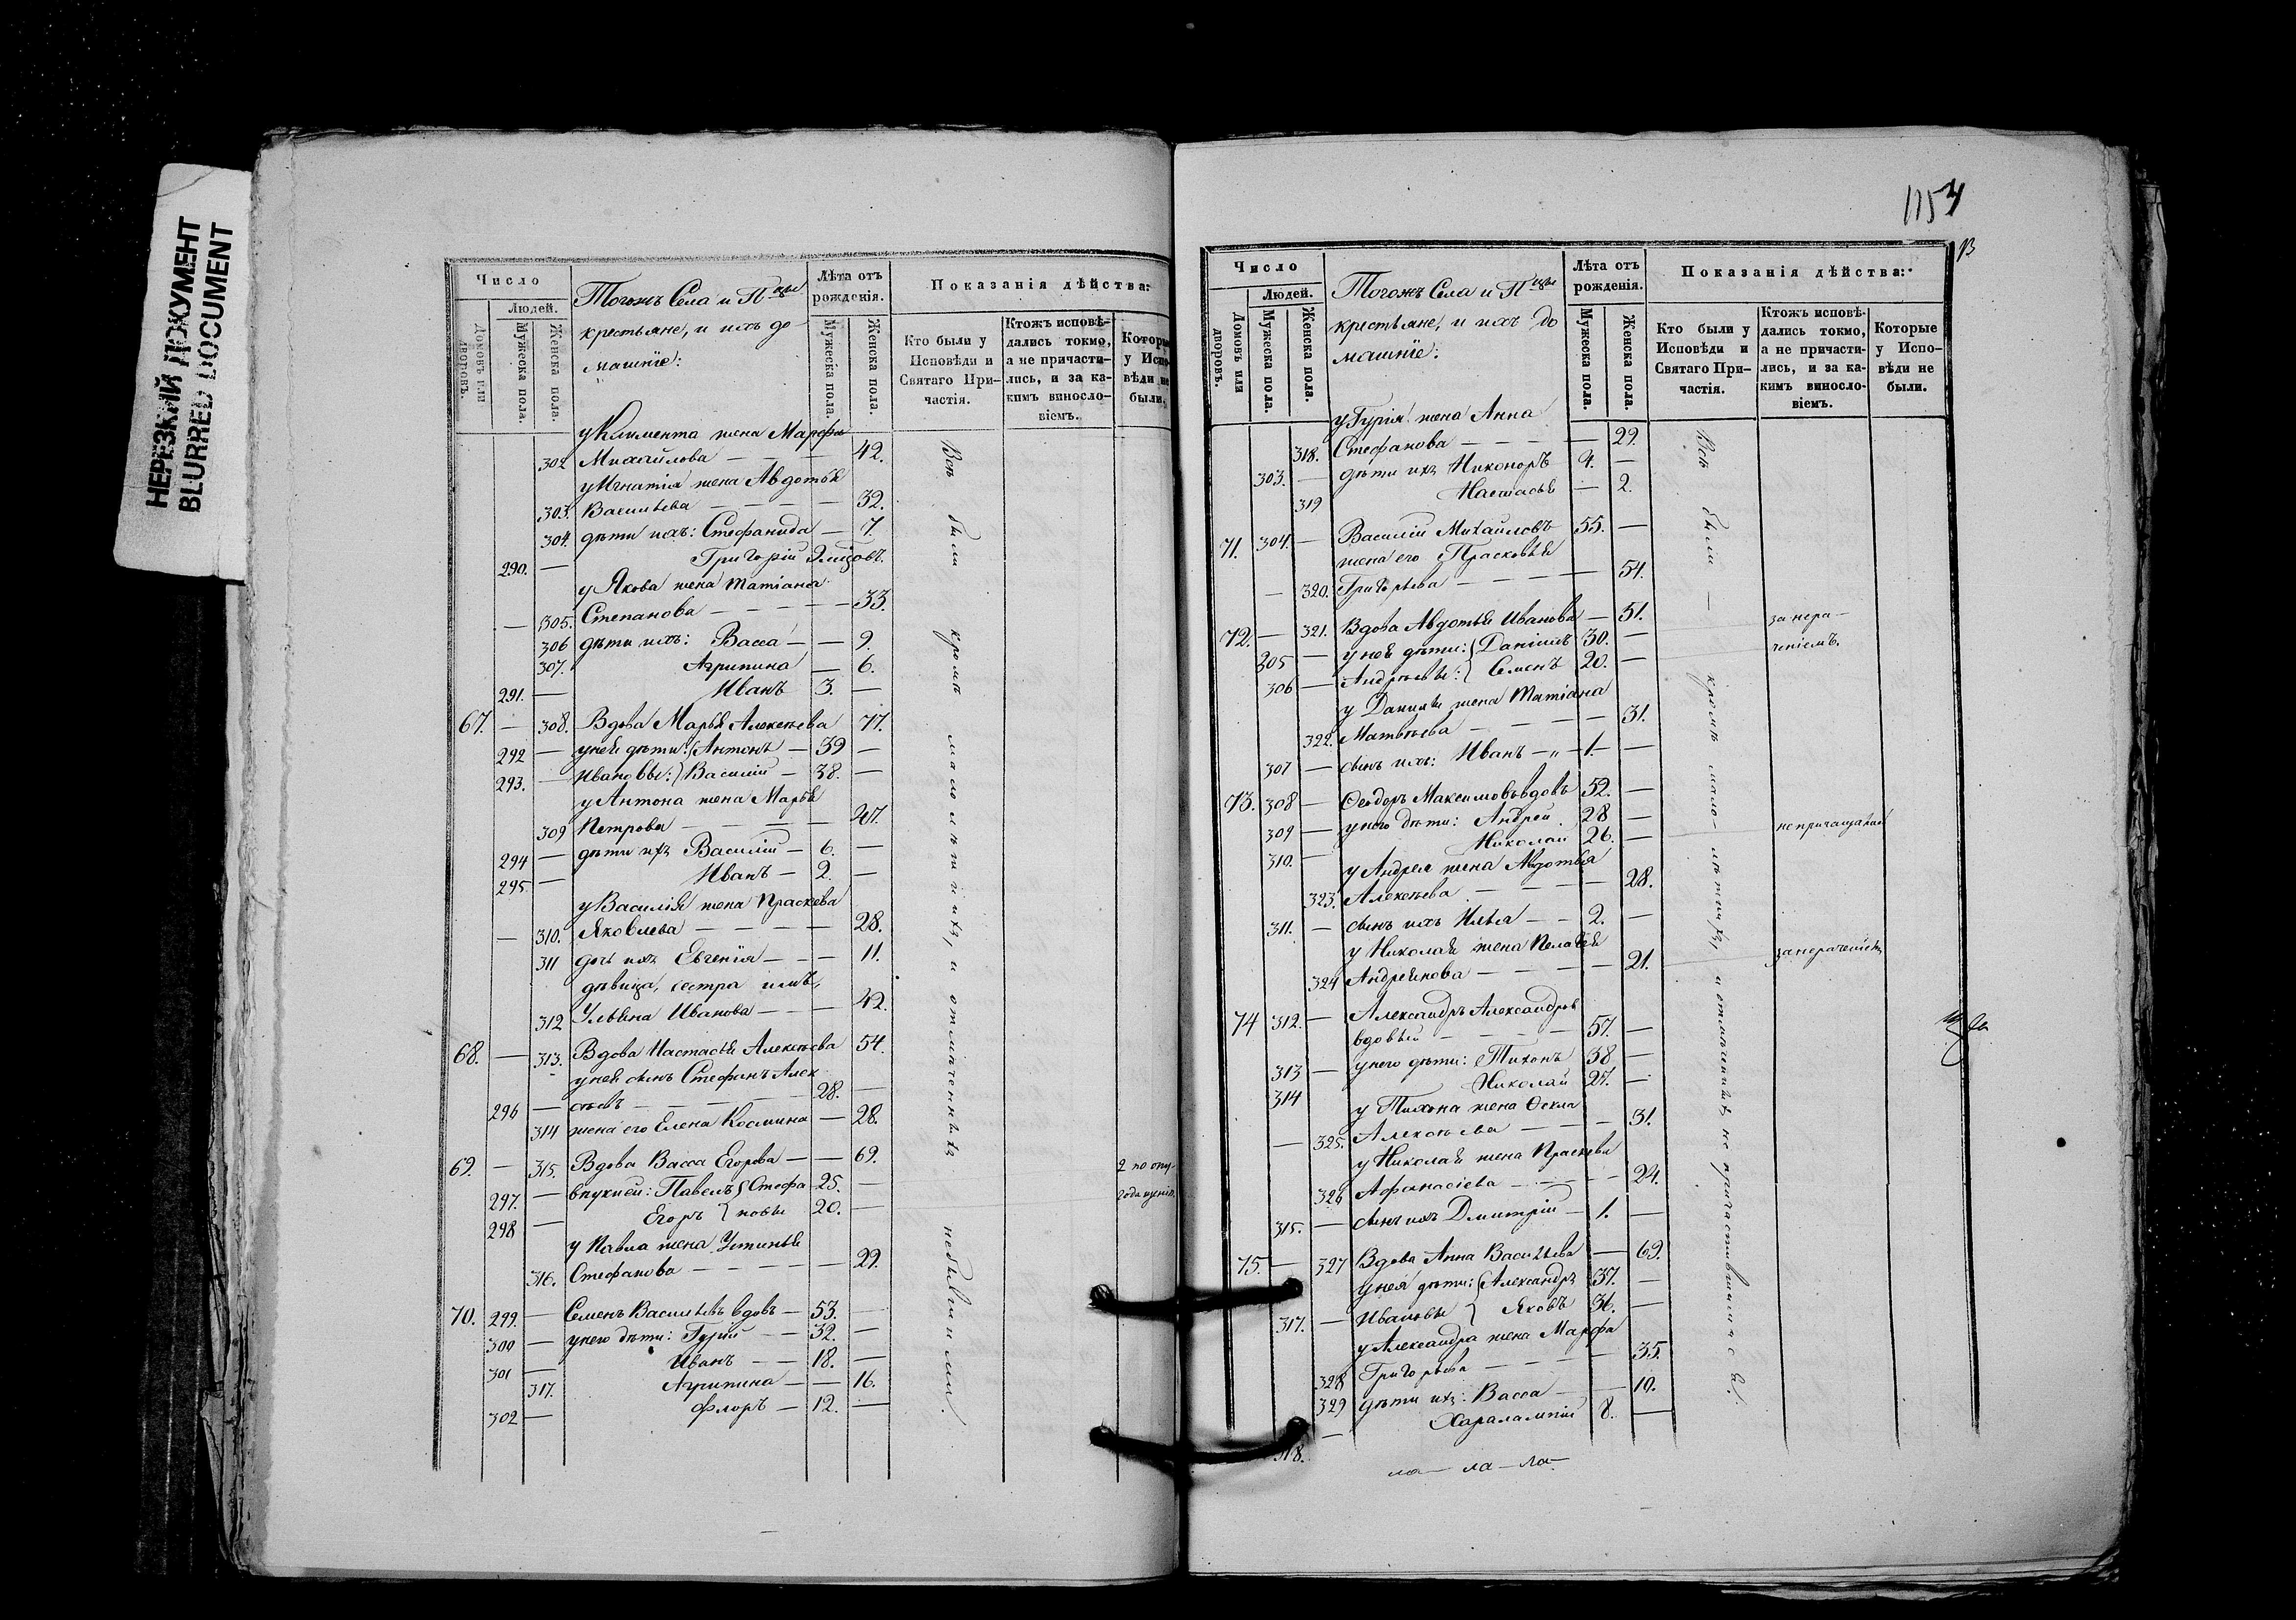 НЕРЕЗКИЙ ДОКУМЕНТ
BLURRED DOCUMENT
Число
Людей.
Домовъ или дворовъ.
Мужеска пола.
Женска пола.
Тогожъ Села и П
крестьяне, и ихъ до-
машніе:
Лѣта отъ рожденія.
Мужеска пола.
Женска пола.
Показанія дѣйства:
Кто были у Исповѣди и Святаго При-частія.
Ктожъ исповѣ-дались токмо, а не причасти-лись, и за ка-кимъ винosло-віемъ.
Которые у Испо-вѣди не были.
у Климента жена Марфа
302 Михайлова — — — 42.
у Игнатія жена Авдотья
303. Васильева — — — 32.
304. дѣти ихъ: Стефанида — 7.
290. — Григорій
у Якова жена Татіана
— 305. Степанова — — — 33.
306 дѣти ихъ: Васса — — 9.
307. Агрипина — 6.
291. — Иванъ 3. —
67. — 308. Вдова Марья Алексѣева 77.
292 — у ней дѣти: Антонъ — 39 —
293. — Ивановы: Василій — 38. —
у Антона жена Марья
309 Петрова — — — 47.
294 — дѣти ихъ Василій — 6. —
295. — Иванъ — 2. —
у Василія жена Праскева
— 310. Яковлева — — — 28.
311 дочь ихъ Евгенія — — 11.
дѣвица, сестра имъ,
312 Ульяна Иванова — — 42.
68. — 313. Вдова Настасья Алексѣева 54.
у ней сынъ Стефанъ Алек
296 — сѣевъ — — — 28. —
314 жена его Елена Космина — 28.
69. — 315. Вдова Васса Егорова — — 69.
297. — внуки ей: Павелъ Стефа 25. —
298 — Егоръ новы 20. —
у Павла жена Устинья
316. Стефанова — — — 29.
70. 299. — Семенъ Васильевъ вдовъ — 53. —
300 — у него дѣти: Гурій — — 32. —
301 — Иванъ — — 18. —
317. Агрипина — — 16.
302 — Флоръ — 12. —
Всѣ были кромѣ малолѣтнихъ, и отмѣченныхъ небывшими.
2 по опу-
1154
13
Число
Людей.
Домовъ или дворовъ.
Мужеска пола.
Женска пола.
Тогожъ Села и П
крестьяне, и ихъ до
машніе:
Лѣта отъ рожденія.
Мужеска пола.
Женска пола.
Показанія дѣйства:
Кто были у Исповѣди и Святаго При-частія.
Ктожъ исповѣ-дались токмо, а не причасти-лись, и за ка-кимъ винosло-віемъ.
Которые у Испо-вѣди не были.
у Гурія жена Анна
318. Стефанова — — — 29.
303. — дѣти ихъ Никоноръ 4. —
319 Настасья — 2.
71. 304. — Василій Михайловъ 55. —
жена его Прасковья
— 320. Григорьева — — — 54.
72. — 321. Вдова Авдотья Иванова — 51.
305 — у ней дѣти: Даніилъ 30. —
306 — Андреевы: Семенъ 20. —
за нера-
ченіемъ.
у Данилы жена Татіана
322. Матвѣева — — — 31.
307 — сынъ ихъ: Иванъ — 1. —
73. 308 — Ѳеодоръ Максимовъ вдовъ 52. —
309 — у него дѣти: Андрей 28 —
310. — Николай 26. —
у Андрея жена Авдотья
323. Алексѣева — — — 28.
311. — сынъ ихъ Илья — — 2. —
у Николая жена Пелагея
324 Андреянова — — — 21.
74 312. — Александръ Александровъ
вдовый — — — 57. —
313 — у него дѣти: Тихонъ 38 —
314 Николай 27. —
у Тихона жена Ѳекла
— 325. Алексѣева — — — 31.
у Николая жена Праскева
326 Афанасіева — — — 24.
315. — сынъ ихъ Дмитрій — 1. —
75. — 327 Вдова Анна Васильева — 69.
у нея дѣти: Александръ 37. —
317. — Ивановы Яковъ 36. —
у Александра жена Марфа
328 Григорьева — — — 35.
329 дѣти ихъ: Васса — — 10.
318. — Харалампій 8. —
Всѣ были — кромѣ мало-лѣтнихъ,